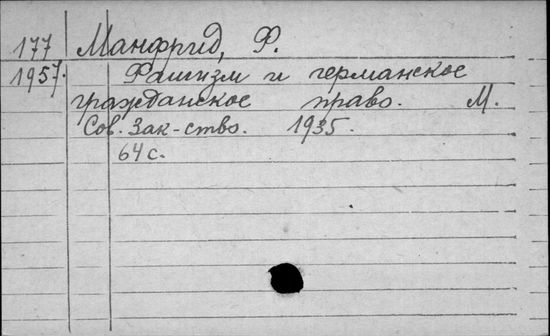 177 Манфрид, Ф.
1957. Фашизм и германское
гражданское право. М.
Сов. Зак-ство. 1935.
64 с.